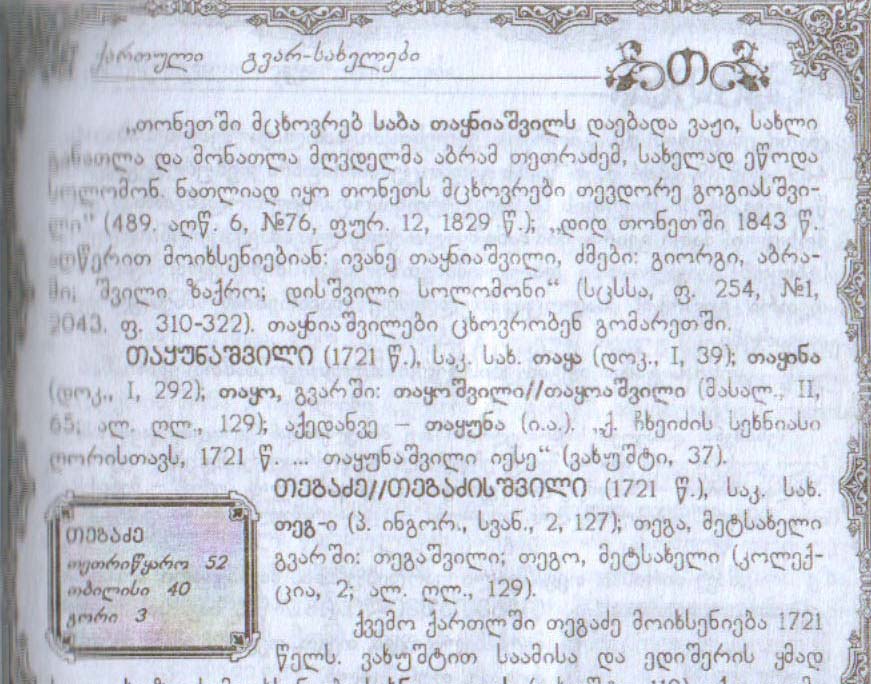 ქართული გვარ-სახელები
თ
„თონეთში მცხოვრებ საბა თაყნიაშვილს დაებადა ვაჟი, სახლი
განათლა და მონათლა მღვდელმა აბრამ თეთრაძემ, სახელად ეწოდა
სოლომონ. ნათლიად იყო თონეთს მცხოვრები თევდორე გოგიასშვი-
ლი“ (489. აღწ. 6, №76, ფურ. 12, 1829 წ.); „დიდ თონეთში 1843 წ.
აღწერით მოიხსენიებიან: ივანე თაყნიაშვილი, ძმები: გიორგი, აბრა-
მი; შვილი ზაქრო; დისშვილი სოლომონი“ (სცსსა, ფ. 254, №1,
2043. ფ. 310-322). თაყნიაშვილები ცხოვრობენ გომარეთში.
თაყუნაშვილი (1721 წ.), საკ. სახ. თაყა (დოკ., I, 39); თაყინა
(დოკ., I, 292); თაყო, გვარში: თაყოშვილი//თაყოაშვილი (მასალ., II,
65; ალ. ღლ., 129); აქედანვე – თაყუნა (ი.ა.). „ქ. ჩხეიძის სეხნიასი
ღორისთავს, 1721 წ. ... თაყუნაშვილი იესე“ (ვახუშტი, 37).
თეგაძე//თეგაძისშვილი (1721 წ.), საკ. სახ.
თეგ-ი (პ. ინგორ., სვან., 2, 127); თეგა, მეტსახელი
გვარში: თეგაშვილი; თეგო, მეტსახელი (კოლექ-
ცია, 2; ალ. ღლ., 129).
ქვემო ქართლში თეგაძე მოიხსენიება 1721
წელს. ვახუშტით საამისა და ედიშერის ყმად
თეგაძე
თეთრიწყარო 52
თბილისი 40
გორი 3